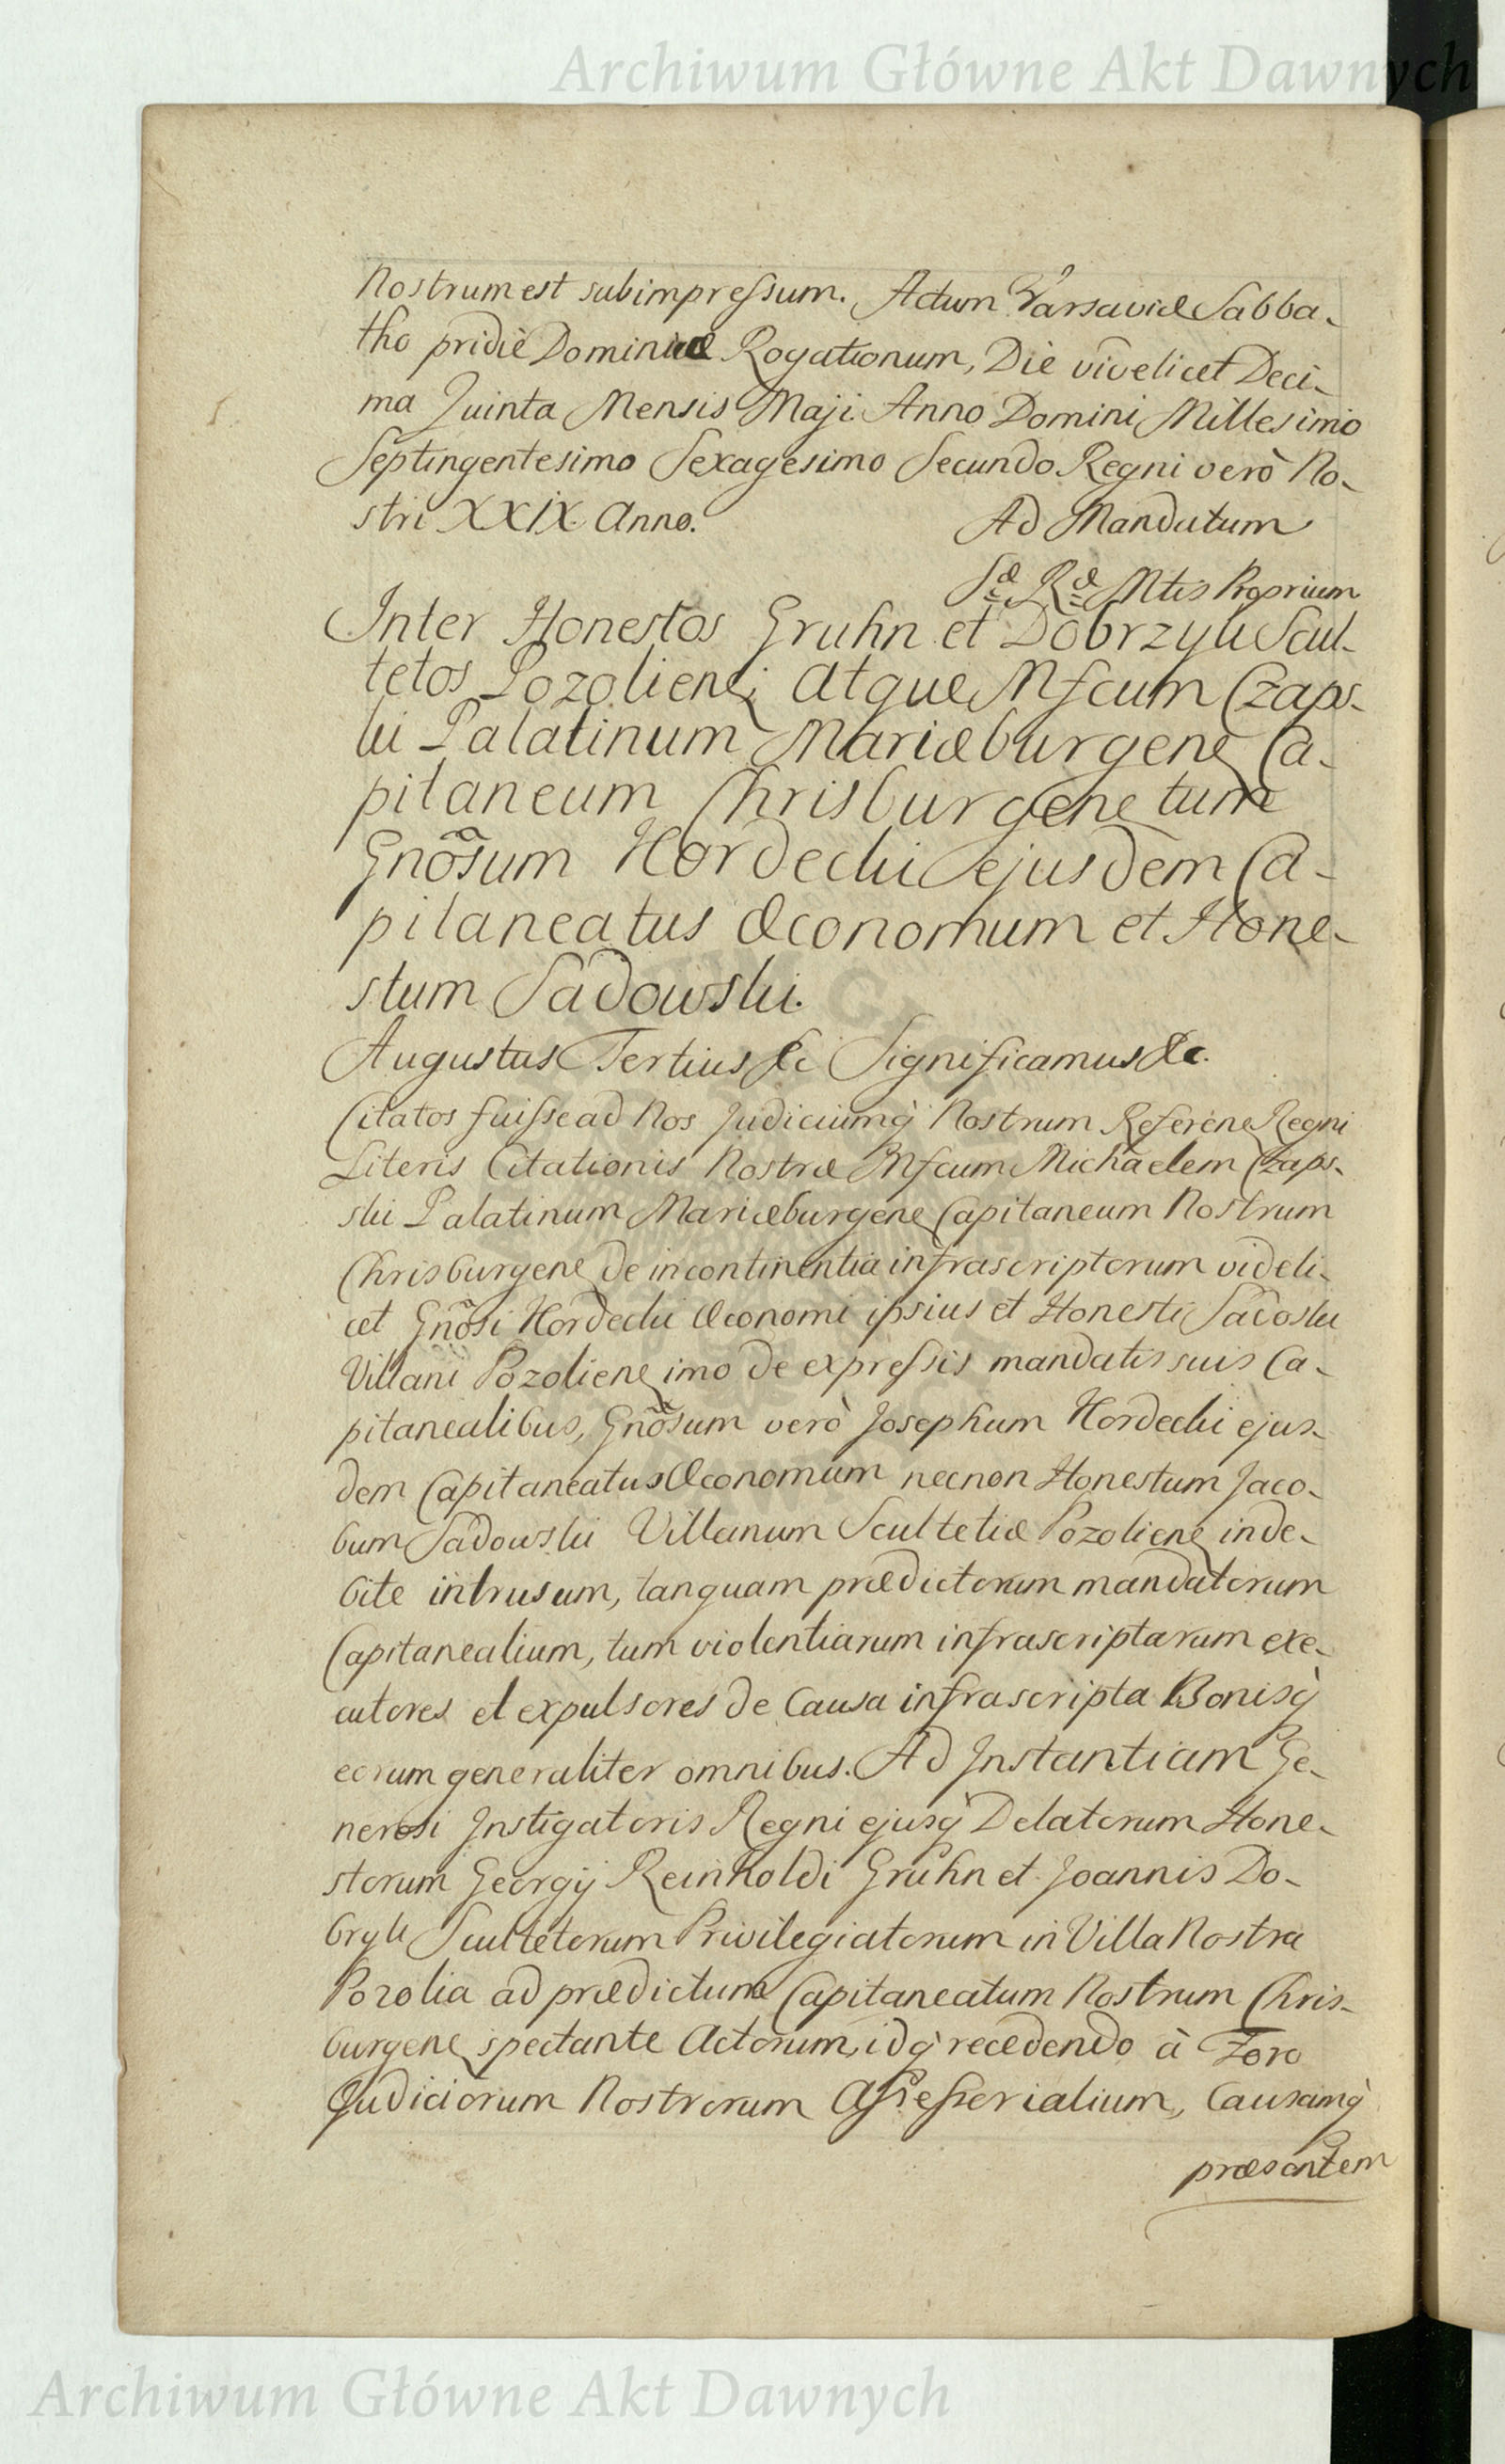 Archiwum Główne Akt Dawnych
Nostrum est subimpressum. Actum Varsaviæ Sabba-
tho pridiè Dominicæ Rogationum, Die vi͞delicet Deci-
ma Quinta Mensis Maji Anno Domini Millesimo
Septingentesimo Sexagesimo Secundo Regni verò No-
stri XXIX Anno. Ad Mandatum
Sæ Ræ Mtis Proprium
Inter Honestos Gruhn et Dobrzyk Scul-
tetos Pozoliens; atque Mfcum Czaps-
ki Palatinum Mariæburgens Ca-
pitaneum Chrisburgens tum
Gnõsum Kordecki ejusdem Ca-
pitaneatus Œconomum et Hone-
stum Sadowski.
Augustus Tertius &c Significamus &c.
Citatos fuisse ad Nos Judiciumq̀ Nostrum Referens Regni
Literis Citationis Nostræ Mfcum Michaelem Czaps-
ski Palatinum Mariæburgens Capitaneum Nostrum
Chrisburgens de incontinentia infrascriptorum videli-
cet Gnõsi Kordecki Œconomi ipsius et Honesti Sadoski
Villani Pozoliens imo de expressis mandatis suis Ca-
pitanealibus, Gnõsum verò Josephum Kordecki ejus-
dem Capitaneatus Œconomum necnon Honestum Jaco-
bum Sadowski Villanum Scultetiæ Pozoliens inde-
bite intrusum, tanquam prædictorum mandatorum
Capitanealium, tum violentiarum infrascriptarum exe-
cutores et expulsores de Causa infrascripta Bonisq̀
eorum generaliter omnibus. Ad Instantiam Ge-
nerosi Instigatoris Regni ejusq̀ Delatorum Hone-
storum Georgij Reinholdi Gruhn et Joannis Do-
bryk Scultetorum Privilegiatorum in Villa Nostra
Pozolia ad prædictum Capitaneatum Nostrum Chris-
burgens spectante Actorum, idq̀ recedendo à Foro
Judiciorum Nostrorum Assessorialium, Causamq̀
præsentem
Archiwum Główne Akt Dawnych